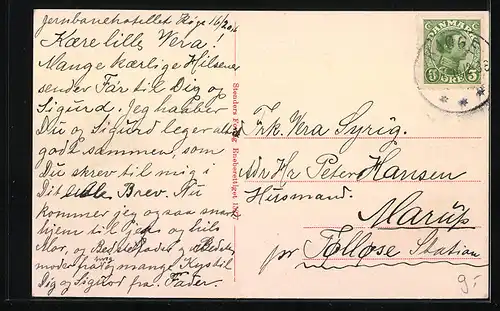 Jernbanehotellet Køge 16/2 016
Kære lille Vera!
Mange kærlige Hilsener
sender Far til Dig og
Sigurd. Jeg haaber
Du og Sigurd leger altid
godt sammen, som
Du skrev til mig i
Dit Brev. Nu
kommer jeg ogsaa snart
hjem til og hils
Mor, og Bedstefader og Bedste
moder fra mig og mange Kys til
Dig og Sigurd fra Fader.
Stenders Forlag Eneberettiget
DANMARK
5 ØRE 5
Frk. Vera Syrig.
Adr Hr Peter Hansen
Husmand.
Marup
pr Tølløse Station
9.-